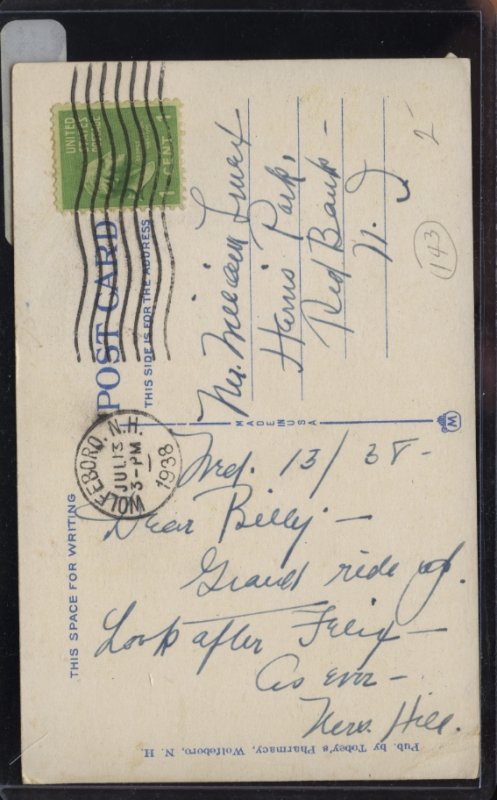 UNITED
STATES
POSTAGE
1 CENT 1
POST CARD
THIS SIDE IS FOR THE ADDRESS
Mr. William
Harris Park,
Red Bank —
N. J.
2
143
MADE IN USA
M
WOLFEBORO, N.H.
JUL 13
3-PM
1938
THIS SPACE FOR WRITING
Wed. 13/38 -
Dear Billy —
Grand ride up.
Look after Felix —
As ever —
Mrs. Hill.
Pub. by Tobey's Pharmacy, Wolfeboro, N. H.